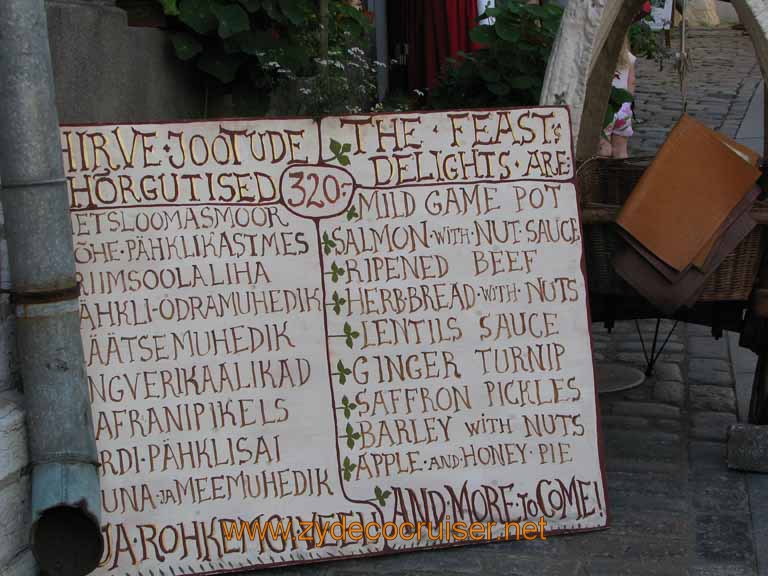 HIRVE·JOOTUDE
HÕRGUTISED
320.-
ETSLOOMASMOOR
ÕHE·PÄHKLIKASTMES
RIIMSOOLALIHA
ÄHKLI-ODRAMUHEDIK
ÄÄTSEMUHEDIK
NGVERIKAALIKAD
AFRANIPIKELS
RDI·PÄHKLISAI
UNA·JA MEEMUHEDIK
JA·ROHKEM
THE·FEASTS
DELIGHTS·ARE:
MILD GAME POT
SALMON·WITH·NUT·SAUCE
RIPENED BEEF
HERB·BREAD·WITH·NUTS
LENTILS SAUCE
GINGER TURNIP
SAFFRON PICKLES
BARLEY WITH NUTS
APPLE·AND·HONEY·PIE
AND·MORE TO COME!
www.zydecocruiser.net